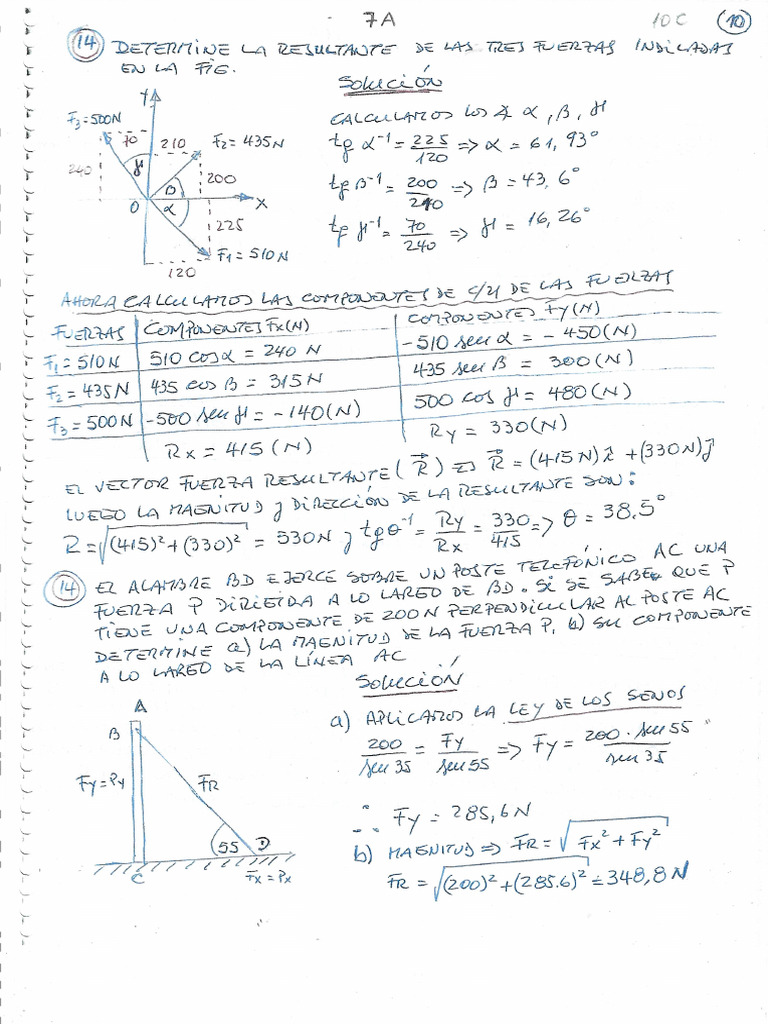 7A 10C 10
14 DETERMINE LA RESULTANTE DE LAS TRES FUERZAS INDICADAS
EN LA FIG.
SOLUCIÓN
Y
F3=500N
70
210
F2=435N
240
γ
β
200
O
α
X
225
F1=510N
120
CALCULAMOS LOS ∡ α, β, γ
tg α⁻¹ = 225/120 => α = 61,93°
tg β⁻¹ = 200/210 => β = 43,6°
tg γ⁻¹ = 70/240 => γ = 16,26°
AHORA CALCULAMOS LAS COMPONENTES DE C/U DE LAS FUERZAS
FUERZAS COMPONENTES Fx(N) COMPONENTES Fy(N)
F1=510N 510 cosα = 240 N -510 sen α = -450(N)
F2=435N 435 cos β = 315N 435 sen β = 300(N)
F3=500N -500 sen γ = -140(N) 500 cos γ = 480(N)
Rx = 415(N) Ry = 330(N)
EL VECTOR FUERZA RESULTANTE (R⃗) ES R⃗ = (415N)î + (330N)ĵ
LUEGO LA MAGNITUD y DIRECCIÓN DE LA RESULTANTE SON:
R = √(415)²+(330)² = 530N y tgθ⁻¹ = Ry/Rx = 330/415 => θ = 38.5°
14 EL ALAMBRE BD EJERCE SOBRE UN POSTE TELEFÓNICO AC UNA
FUERZA P DIRIGIDA A LO LARGO DE BD. SI SE SABE QUE P
TIENE UNA COMPONENTE DE 200N PERPENDICULAR AL POSTE AC
DETERMINE a) LA MAGNITUD DE LA FUERZA P, b) SU COMPONENTE
A LO LARGO DE LA LÍNEA AC
SOLUCIÓN
A
B
Fy=Py
FR
55
D
C
Fx=Px
a) APLICAMOS LA LEY DE LOS SENOS
200/sen 35 = Fy/sen 55 => Fy = 200 · sen 55/sen 35
∴ Fy = 285,6 N
b) MAGNITUD => FR = √Fx² + Fy²
FR = √(200)² + (285.6)² = 348,8 N